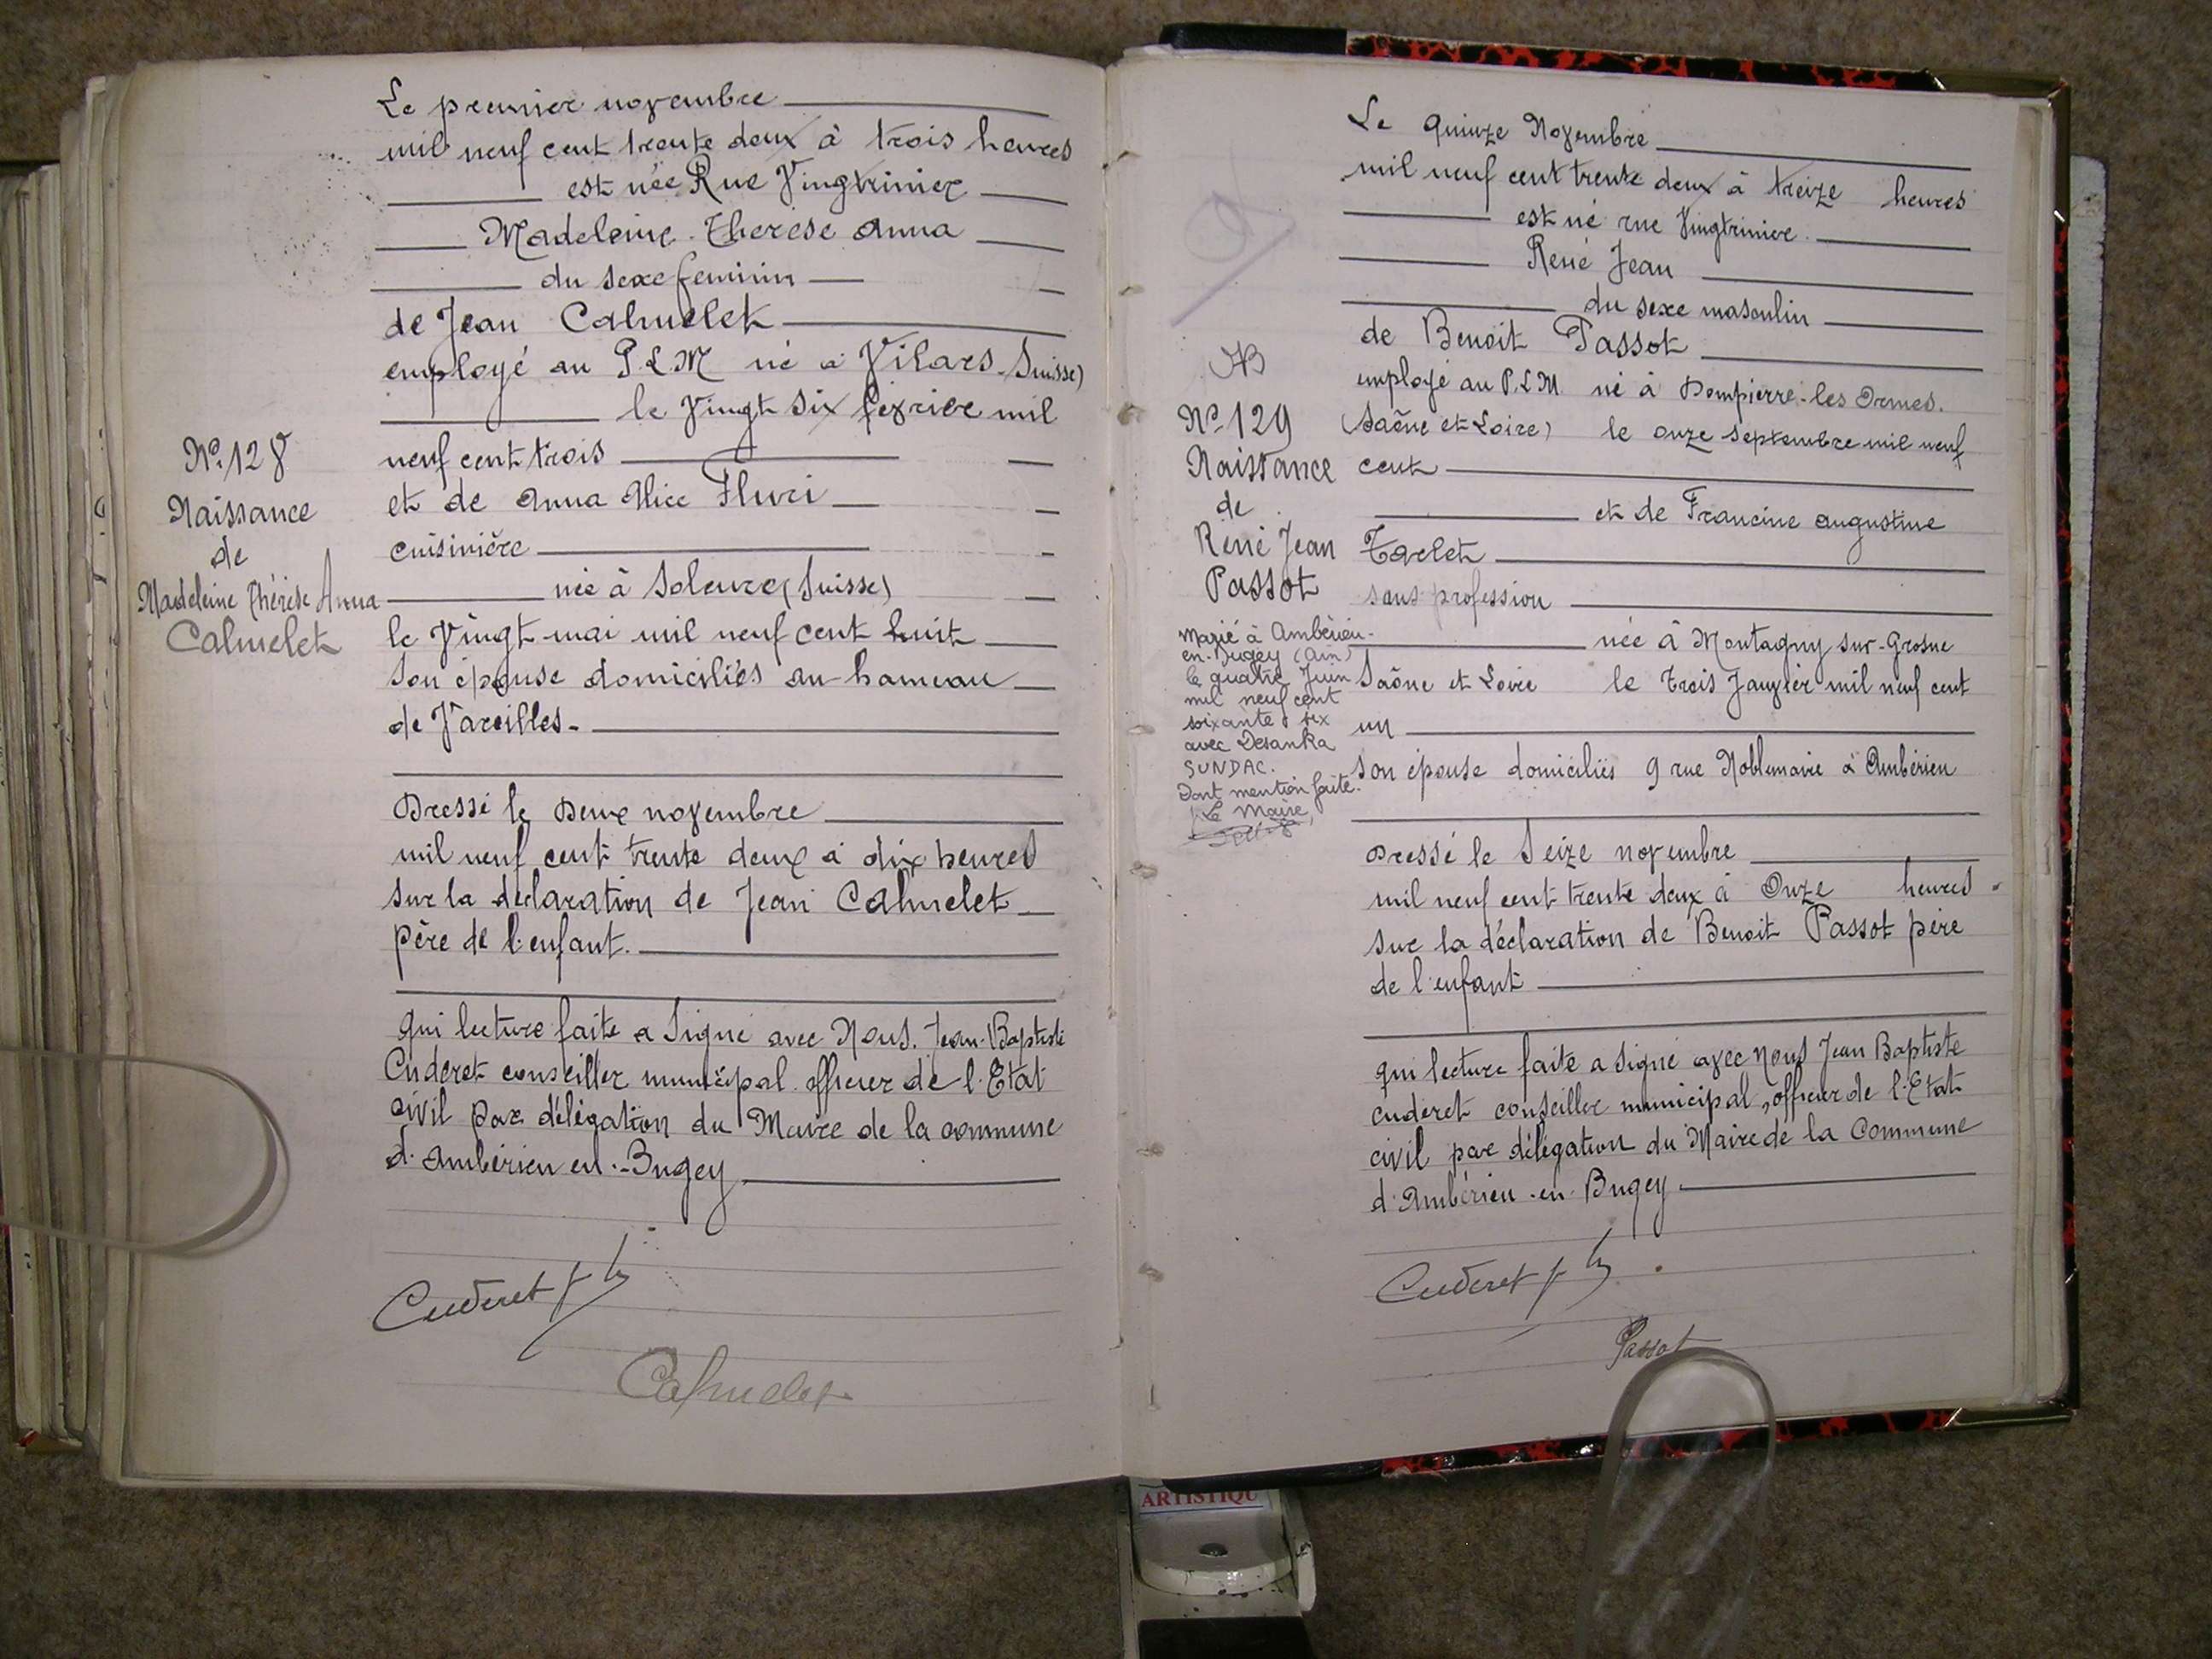 Le premier novembre
mil neuf cent trente deux à trois heures
est née Rue Vingtrinier
Madeleine Therèse Anna
du sexe feminin
de Jean Calmelet
employé au P.L.M né à Vilars (Suisse)
le Vingt six février mil
neuf cent trois
et de Anna Alice Fluri
cuisinière
née à Soleure (Suisse)
le Vingt mai mil neuf cent huit
son épouse domiciliés au hameau
de Vareilles.
Dressé le Deux novembre
mil neuf cent trente deux à dix heures
sur la déclaration de Jean Calmelet
père de l'enfant.
qui lecture faite a Signé avec Nous. Jean-Baptiste
Cuderet conseiller municipal officier de l'Etat
civil par délégation du Maire de la commune
d'Ambérieu en-Bugey
Cuderet
Calmelet
N° 128
Naissance
de
Madeleine Thérèse Anna
Calmelet
Le quinze Novembre
mil neuf cent trente deux à treize heures
est né rue Vingtrinier
René Jean
du sexe masculin
de Benoit Passot
employé au P.L.M. né à Dompierre-les Ormes.
(Saône et Loire) le onze septembre mil neuf
cent
et de Francine augustine
Tarlet
sans profession
née à Montagny sur-Grosne
Saône et Loire le trois Janvier mil neuf cent
un
son épouse domiciliés 9 rue Noblemaire à Ambérieu
Dressé le Seize novembre
mil neuf cent trente deux à Onze heures
sur la déclaration de Benoit Passot père
de l'enfant
qui lecture faite a signé avec nous Jean Baptiste
cuderet conseiller municipal, officier de l'Etat
civil par délégation du Maire de la Commune
d'Ambérieu-en-Bugey
Cuderet
Passot
N° 129
Naissance
de
René Jean
Passot
Marié à Ambérieu-
en-Bugey (Ain)
le quatre Juin
mil neuf cent
soixante six
avec Desanka
SUNDAC.
Dont mention faite.
Le Maire,
ARTISTIQU